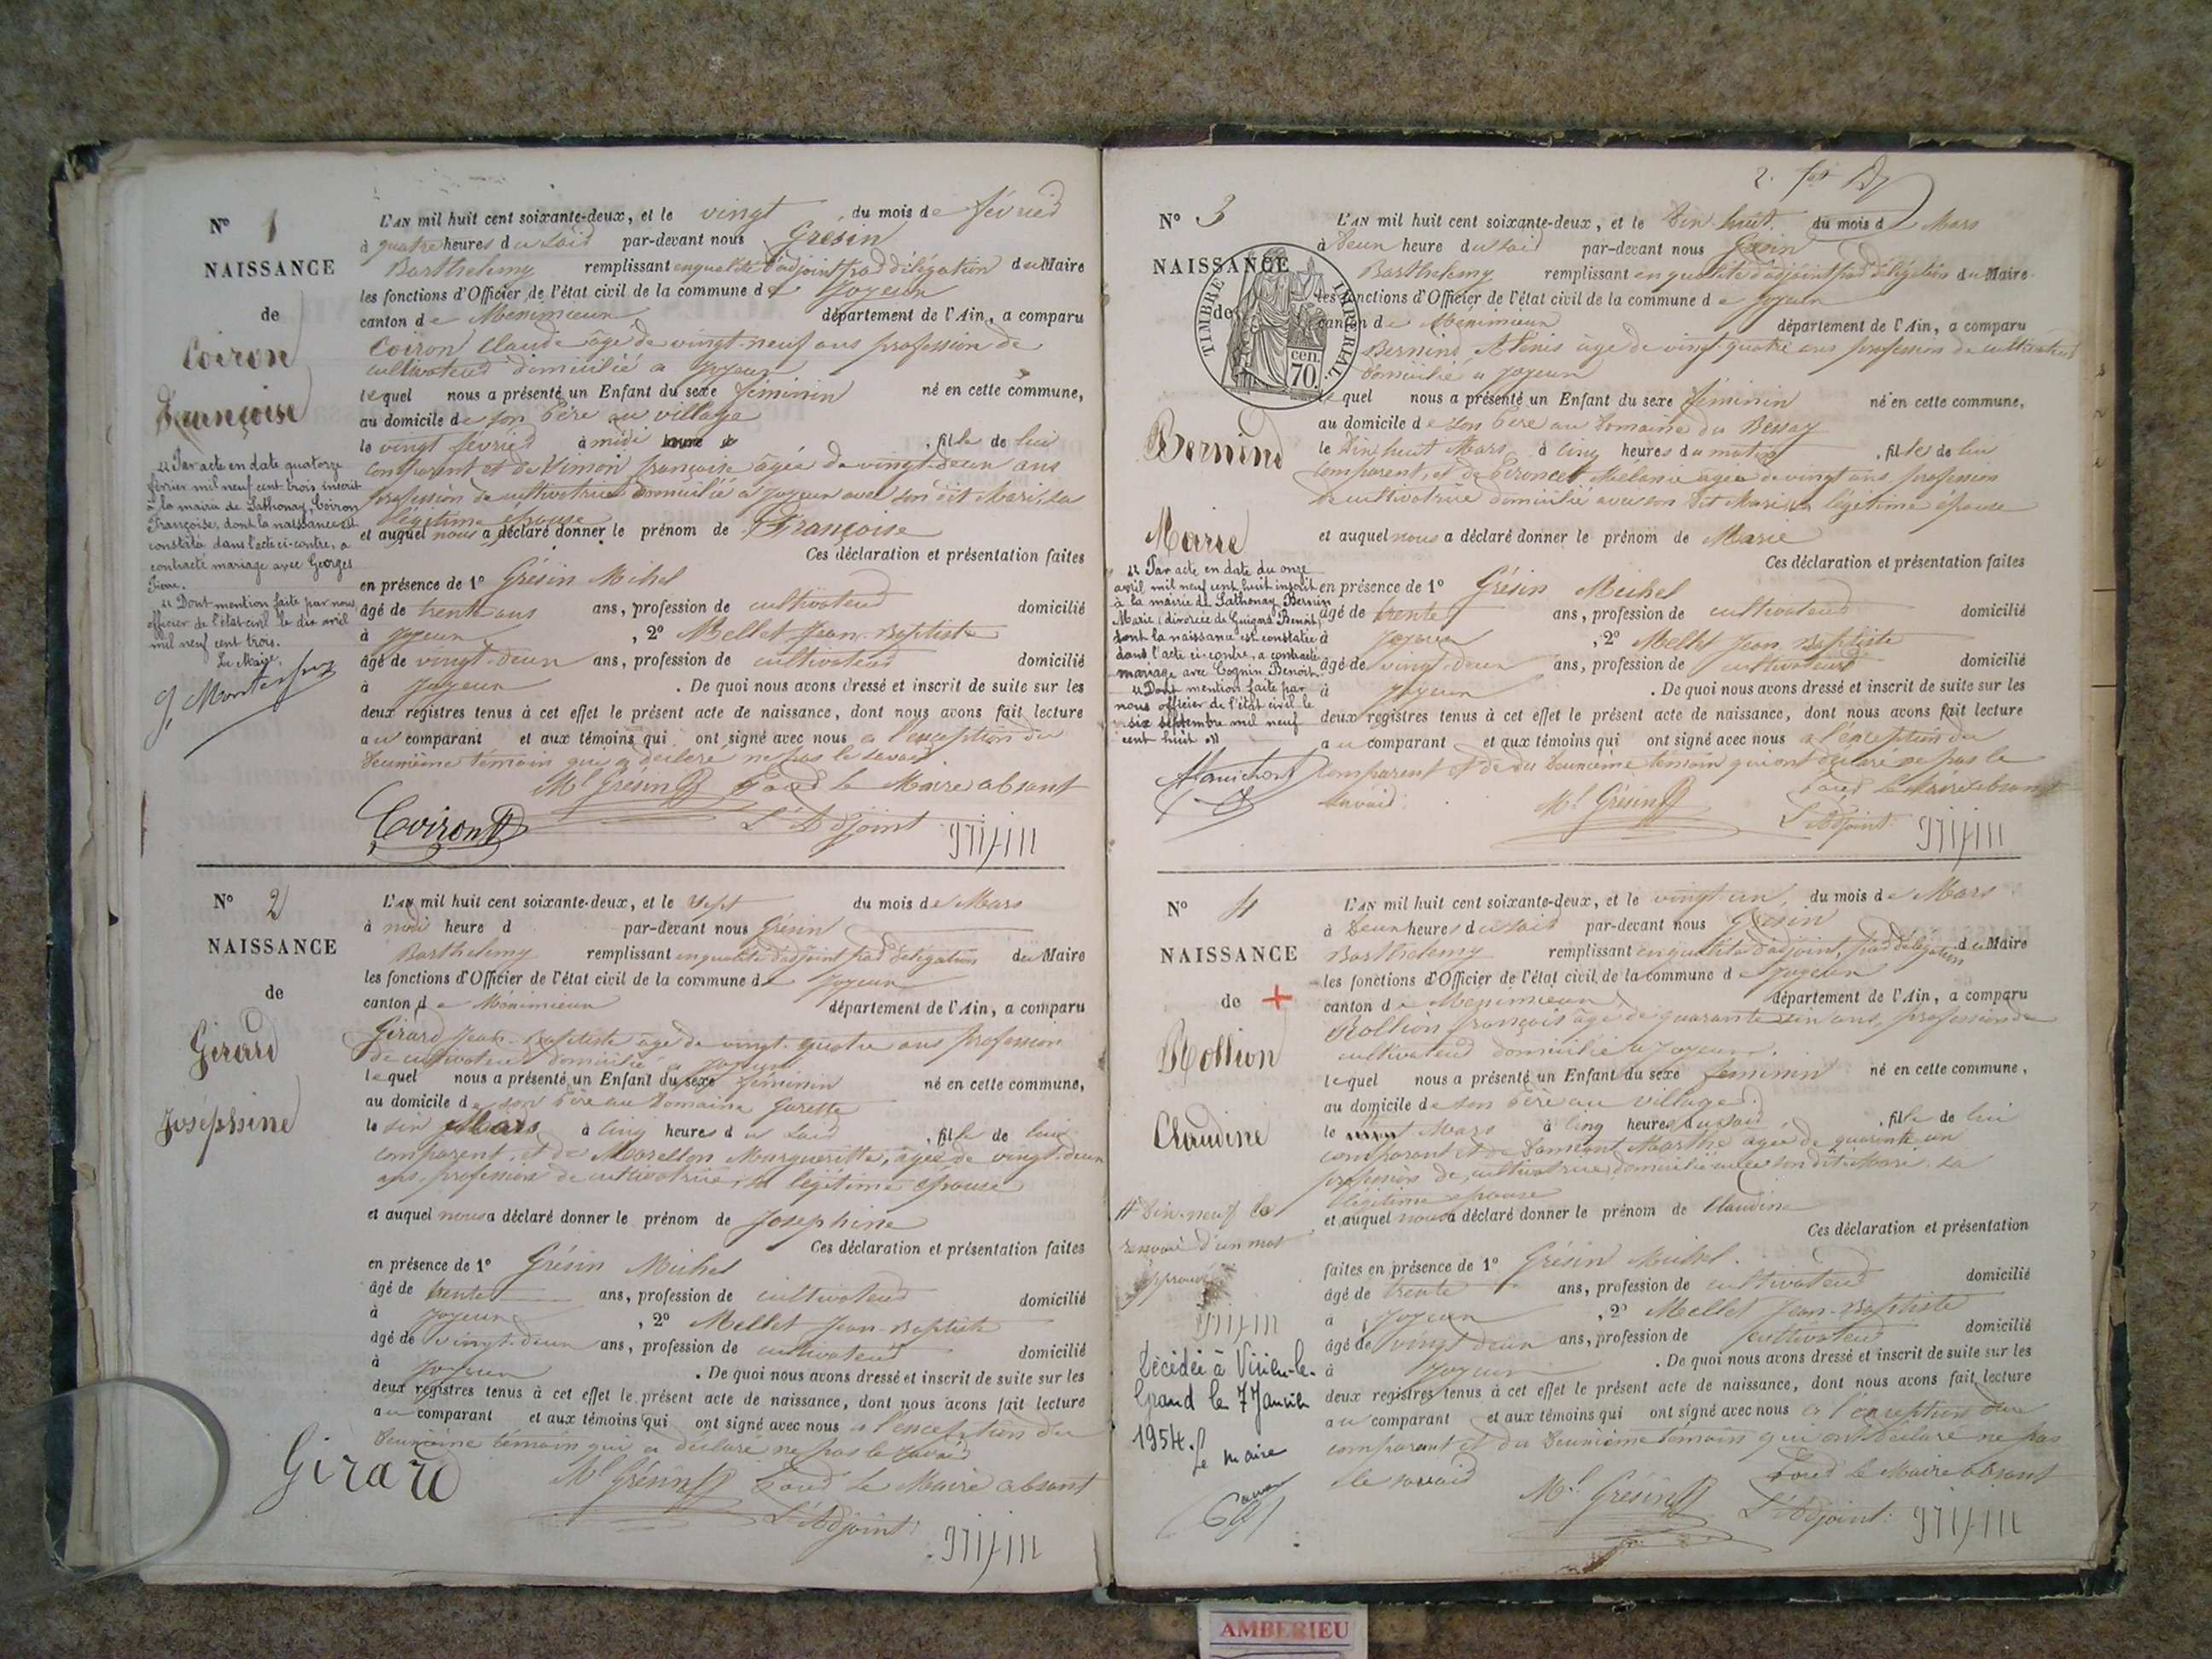 N° 1
NAISSANCE
de
Coiron
Françoise
L'AN mil huit cent soixante-deux, et le vingt du mois de février
à quatre heures du soir par-devant nous Grésin
Barthelemy remplissant en qualité d'adjoint par délégation du Maire
les fonctions d'Officier de l'état civil de la commune de Joyeux
canton de Meximieux département de l'Ain, a comparu
Coiron Claude âgé de vingt-neuf ans profession de
cultivateur domicilié à Joyeux
lequel nous a présenté un Enfant du sexe féminin né en cette commune,
au domicile de son Père au village
le vingt février à midi , fille de lui
comparant et de Vimon françoise âgée de vingt-deux ans
profession de cultivatrice domiciliée à Joyeux avec son dit Mari, sa
légitime épouse
et auquel nous a déclaré donner le prénom de Françoise
Ces déclaration et présentation faites
en présence de 1° Grésin Mihel
âgé de trente ans ans, profession de cultivateur domicilié
à Joyeux , 2° Mellet Jean-Baptiste
âgé de vingt-deux ans, profession de cultivateur domicilié
à Joyeux . De quoi nous avons dressé et inscrit de suite sur les
deux registres tenus à cet effet le présent acte de naissance, dont nous avons fait lecture
au comparant et aux témoins qui ont signé avec nous à l'exception du
deuxième témoin que a déclaré ne pas le savoir
Ml Grésin Pour le Maire absant
Coiron L'Adjoint
Par acte en date quatorze
février mil neuf cent trois inscrit
à la mairie de Sathonay, Coiron
Françoise, dont la naissance est
constatée dans l'acte ci-contre, a
contracté mariage avec Georges
Pierre.
Dont mention faite par nous
officier de l'état-civil le dix avril
mil neuf cent trois.
Le Maire,
N° 2
NAISSANCE
de
Girard
Joséphine
L'AN mil huit cent soixante-deux, et le sept du mois de Mars
à midi heure d par-devant nous Grésin
Barthelemy remplissant en qualité d'adjoint par délégation du Maire
les fonctions d'Officier de l'état civil de la commune de Joyeux
canton de Meximieux département de l'Ain, a comparu
Girard Jean-Baptiste âgé de vingt-quatre ans profession
de cultivateur domicilié à Joyeux
lequel nous a présenté un Enfant du sexe féminin né en cette commune,
au domicile de son Père au Domaine Garette
le six Mars à cinq heures du soir , fille de lui
comparant, et de Morellon Margueritte, âgée de vingt-deux
ans, profession de cultivatrice, sa légitime épouse
et auquel nous a déclaré donner le prénom de Josephine
Ces déclaration et présentation faites
en présence de 1° Grésin Michel
âgé de trente ans, profession de cultivateur domicilié
à Joyeux , 2° Mellet Jean-Baptiste
âgé de vingt-deux ans, profession de cultivateur domicilié
à Joyeux . De quoi nous avons dressé et inscrit de suite sur les
deux registres tenus à cet effet le présent acte de naissance, dont nous avons fait lecture
au comparant et aux témoins qui ont signé avec nous à l'exception du
deuxième témoin qui a déclaré ne pas le savoir
Girard Ml Grésin Pour le Maire absant
L'Adjoint
N° 3
NAISSANCE
de
TIMBRE IMPERIAL
70 cen.
Bernin
Marie
L'AN mil huit cent soixante-deux, et le dix huit du mois de Mars
à deux heure du soir par-devant nous Grésin
Barthelemy remplissant en qualité d'adjoint par délégation du Maire
les fonctions d'Officier de l'état civil de la commune de Joyeux
canton de Meximieux département de l'Ain, a comparu
Bernin Alexis âgé de vingt quatre ans profession de cultivateur
domicilié à Joyeux
lequel nous a présenté un Enfant du sexe féminin né en cette commune,
au domicile de son Père au Domaine du Bessay
le dix huit Mars à cinq heures du matin , fille de lui
comparent, et de Péroncel Mélanie âgée de vingt ans profession
de cultivatrice domicilié avec son dit Mari, sa légitime épouse
et auquel nous a déclaré donner le prénom de Marie
Ces déclaration et présentation faites
en présence de 1° Grésin Michel
âgé de trente ans, profession de cultivateur domicilié
à Joyeux , 2° Mellet Jean Baptiste
âgé de vingt-deux ans, profession de cultivateur domicilié
à Joyeux . De quoi nous avons dressé et inscrit de suite sur les
deux registres tenus à cet effet le présent acte de naissance, dont nous avons fait lecture
au comparant et aux témoins qui ont signé avec nous à l'exception du
comparent et de du deuxième témoin qui ont déclaré ne pas le
savoir Ml Grésin Pour le Maire absant
L'Adjoint
Par acte en date du onze
avril mil neuf cent huit inscrit
à la mairie de Sathonay Bernin
Marie (divorcée de Guigard Benoît)
dont la naissance est constatée
dans l'acte ci-contre, a contracté
mariage avec Cognin Benoit.
Dont mention faite par
nous officier de l'état civil le
six septembre mil neuf
cent huit
N° 4
NAISSANCE
de
Rollion
Claudine
L'AN mil huit cent soixante-deux, et le vingt un du mois de Mars
à deux heures du soir par-devant nous Grésin
Barthelemy remplissant en qualité d'adjoint, par délégation du Maire
les fonctions d'Officier de l'état civil de la commune de Joyeux
canton de Meximieux département de l'Ain, a comparu
Rollion françois âgé de quarante six ans, profession de
cultivateur domicilié à Joyeux.
lequel nous a présenté un Enfant du sexe féminin né en cette commune,
au domicile de son Père au village.
le Mars à cinq heures du soir , fille de lui
comparant et de Marthe âgée de quarante un
profession de cultivatrice domiciliée avec son dit Mari sa
légitime épouse
et auquel nous a déclaré donner le prénom de Claudine
Ces déclaration et présentation
faites en présence de 1° Grésin Michel.
âgé de trente ans, profession de cultivateur domicilié
à Joyeux , 2° Mellet Jean-Baptiste
âgé de vingt deux ans, profession de cultivateur domicilié
à Joyeux . De quoi nous avons dressé et inscrit de suite sur les
deux registres tenus à cet effet le présent acte de naissance, dont nous avons fait lecture
au comparant et aux témoins qui ont signé avec nous à l'exception du
comparant et du deuxième témoin qui ont déclaré ne pas
le savoir Ml Grésin Pour le Maire absant
L'Adjoint:
# Dix-neuf le
renvoi d'un mot
approuvé
Décédée à Virieu-le-
Grand le 7 Janvier
1954. Le maire
AMBERIEU